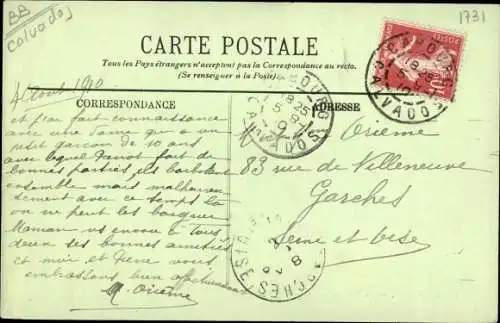 BB
Calvados
1731
CARTE POSTALE
Tous les Pays étrangers n'acceptent pas la Correspondance au recto.
(Se renseigner à la Poste)
CORRESPONDANCE
ADRESSE
4 Août 1910
et j'ai fait connaissance
avec une Dame qui a un
petit garçon de 10 ans
avec lequel fait de
bonnes parties
ensemble mais malheureu
sement avec ce temps là
on ne peut les
Maman vs envoie à Tous
deux ses bonnes amitiés
et moi et vous
embrassons bien affectueusement
Orième
Orième
83 rue de Villeneuve
Garches
Seine et Oise
CABOURG
18 25
5 8
10
CALVADOS
CABOURG
18 25
5 8
10
CALVADOS